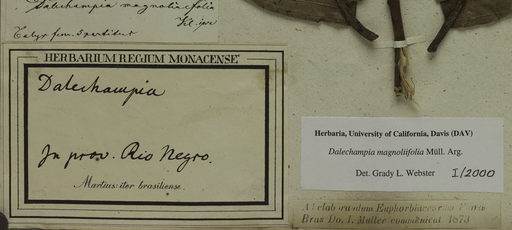 Dalechampia magnoliaefolia
Calyx fem. 5 partitus
HERBARIUM REGIUM MONACENSE
Dalechampia
In prov. Rio Negro.
Martius: iter brasiliense.
Herbaria, University of California, Davis (DAV)
Dalechampia magnoliifolia Müll. Arg.
Det. Grady L. Webster I/2000
Ad elaborandum Euphorbiaceas
Bras Do. J. Muller communicat 1873